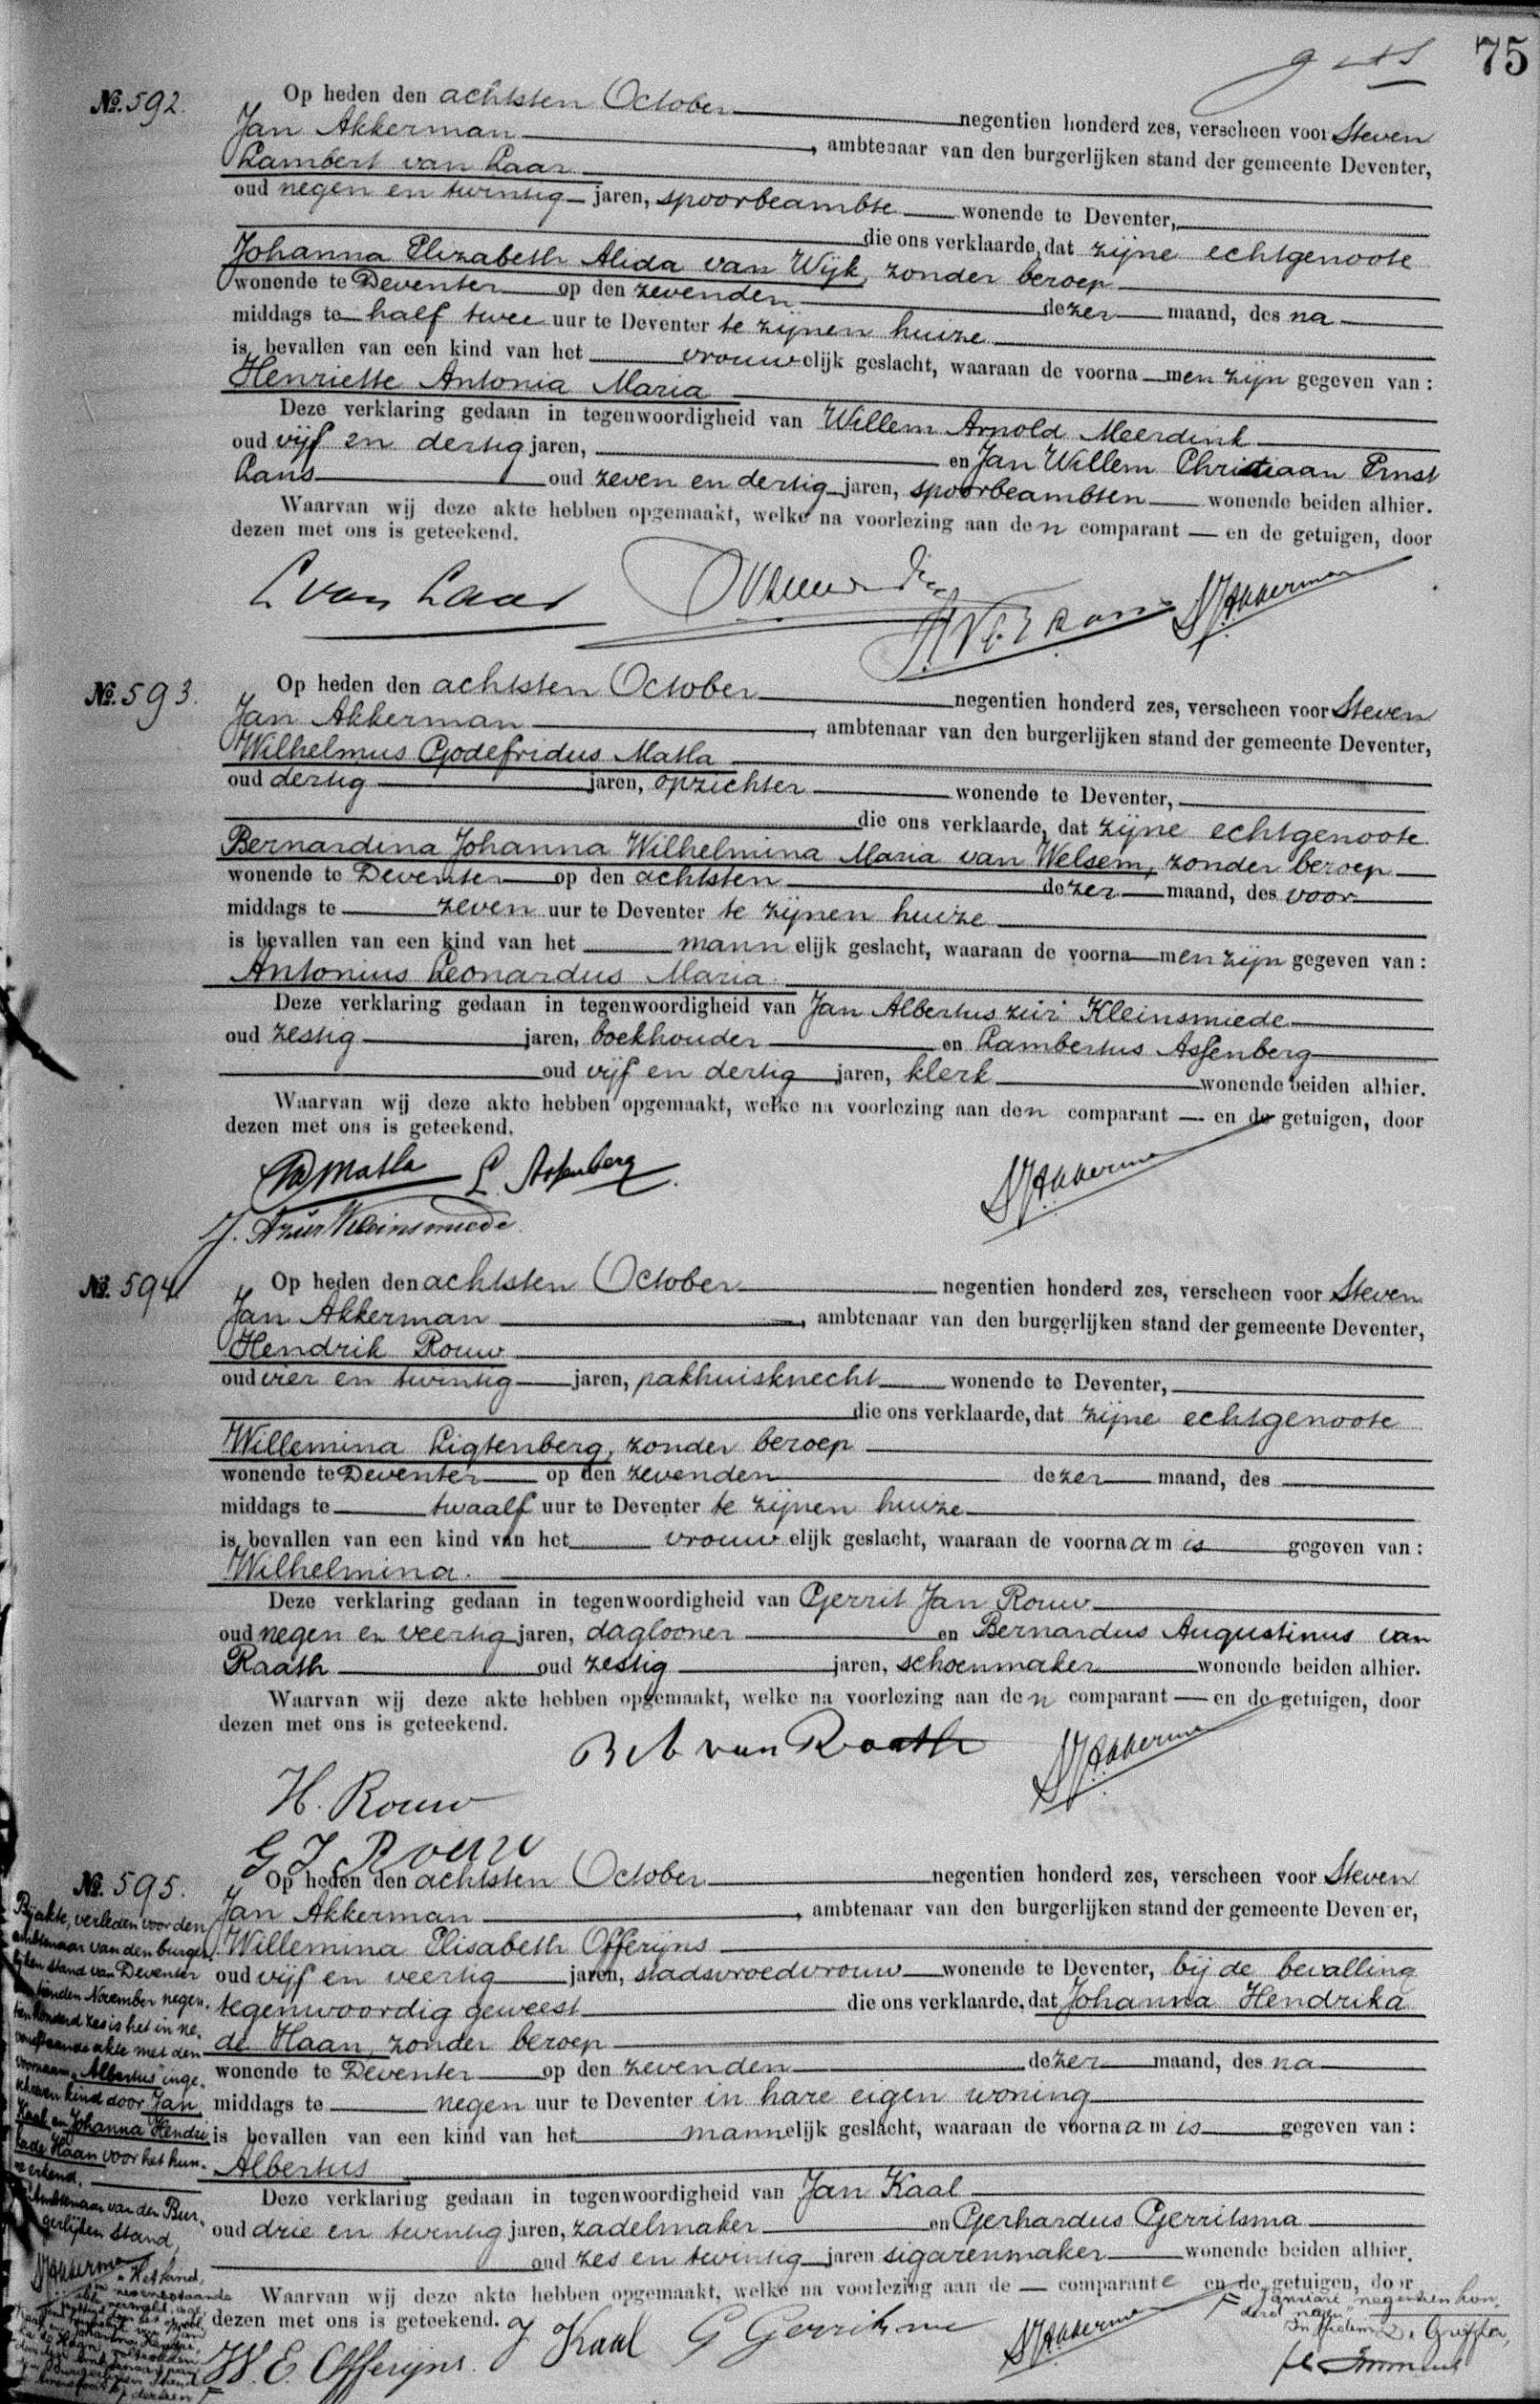 75
No. 592.
Op heden den achtsten October negentien honderd zes, verscheen voor Steven
Jan Akkerman, ambtenaar van den burgerlijken stand der gemeente Deventer,
Lambert van Laar
oud negen en twintig jaren, spoorbeambte wonende te Deventer,
die ons verklaarde, dat zijne echtgenoote
Johanna Elizabeth Alida van Wijk, zonder beroep
wonende te Deventer op den zevenden dezer maand, des na
middags te half twee uur te Deventer te zijnen huize
is bevallen van een kind van het vrouwelijk geslacht, waaraan de voornamen zijn gegeven van:
Henriette Antonia Maria
Deze verklaring gedaan in tegenwoordigheid van Willem Arnold Meerdink
oud vijf en dertig jaren, en Jan Willem Christiaan Ernst
Rans oud zeven en dertig jaren, spoorbeambten wonende beiden alhier.
Waarvan wij deze akte hebben opgemaakt, welke na voorlezing aan den comparant — en de getuigen, door
dezen met ons is geteekend.
L van Laar SJAkkerman
No. 593.
Op heden den achtsten October negentien honderd zes, verscheen voor Steven
Jan Akkerman, ambtenaar van den burgerlijken stand der gemeente Deventer,
Wilhelmus Godefridus Matla
oud dertig jaren, opzichter wonende te Deventer,
die ons verklaarde, dat zijne echtgenoote
Bernardina Johanna Wilhelmina Maria van Welsem, zonder beroep
wonende te Deventer op den achtsten dezer maand, des voor
middags te zeven uur te Deventer te zijnen huize
is bevallen van een kind van het mannelijk geslacht, waaraan de voornamen zijn gegeven van:
Antonius Leonardus Maria
Deze verklaring gedaan in tegenwoordigheid van Jan Albertus zur Kleinsmiede
oud zestig jaren, boekhouder en Lambertus Assenberg
oud vijf en dertig jaren, klerk wonende beiden alhier.
Waarvan wij deze akte hebben opgemaakt, welke na voorlezing aan den comparant — en de getuigen, door
dezen met ons is geteekend.
Matla L. Assenberg SJAkkerman
J. A zur Kleinsmiede
No. 594
Op heden den achtsten October negentien honderd zes, verscheen voor Steven
Jan Akkerman, ambtenaar van den burgerlijken stand der gemeente Deventer,
Hendrik Rouw
oud vier en twintig jaren, pakhuisknecht wonende te Deventer,
die ons verklaarde, dat zijne echtgenoote
Willemina Ligtenberg, zonder beroep
wonende te Deventer op den zevenden dezer maand, des
middags te twaalf uur te Deventer te zijnen huize
is bevallen van een kind van het vrouwelijk geslacht, waaraan de voornaam is gegeven van:
Wilhelmina.
Deze verklaring gedaan in tegenwoordigheid van Gerrit Jan Rouw
oud negen en veertig jaren, daglooner en Bernardus Augustinus van
Raath oud zestig jaren, schoenmaker wonende beiden alhier.
Waarvan wij deze akte hebben opgemaakt, welke na voorlezing aan den comparant — en de getuigen, door
dezen met ons is geteekend.
B A van Raath SJAkkerman
H. Rouw
G J Rouw
No. 595.
Op heden den achtsten October negentien honderd zes, verscheen voor Steven
Jan Akkerman, ambtenaar van den burgerlijken stand der gemeente Deventer,
Willemina Elisabeth Offerijns
oud vijf en veertig jaren, stadsvroedvrouw wonende te Deventer, bij de bevalling
tegenwoordig geweest die ons verklaarde, dat Johanna Hendrika
de Haan, zonder beroep
wonende te Deventer op den zevenden dezer maand, des na
middags te negen uur te Deventer in hare eigen woning
is bevallen van een kind van het mannelijk geslacht, waaraan de voornaam is gegeven van:
Albertus
Deze verklaring gedaan in tegenwoordigheid van Jan Kaal
oud drie en twintig jaren, zadelmaker en Gerhardus Gerritsma
oud zes en twintig jaren sigarenmaker wonende beiden alhier.
Waarvan wij deze akte hebben opgemaakt, welke na voorlezing aan de — comparante en de getuigen, door
dezen met ons is geteekend.
W. E. Offerijns. J Kaal G Gerritsma SJAkkerman
Bij akte, verleden voor den
ambtenaar van den burger-
lijken stand van Deventer
tienden November negen-
tien honderd zes is het in ne-
venstaande akte met den
voornaam "Albertus" inge-
schreven kind door Jan
Kaal en Johanna Hendri-
ka de Haan voor het hun-
ne erkend.
Ambtenaar van den Bur-
gerlijken Stand,
SJAkkerman
januari negentien hon-
derd negen
Griffier,